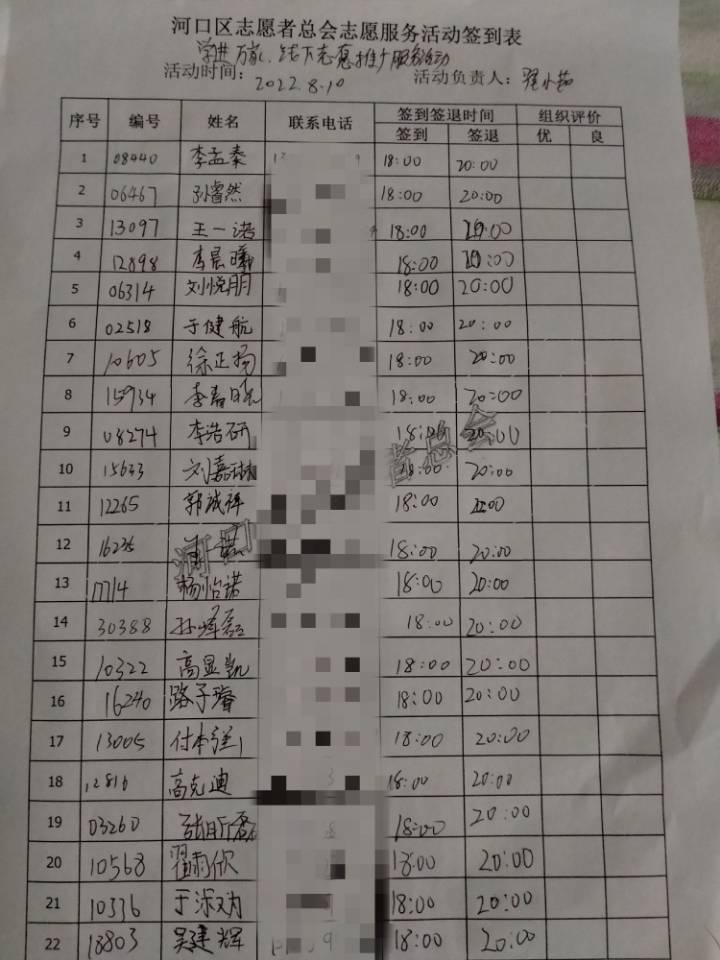 河口区志愿者总会志愿服务活动签到表
学进万家、线下志愿推广服务活动
活动时间： 2022.8.10 活动负责人：
序号 编号 姓名 联系电话 签到签退时间 组织评价
签到 签退 优 良
1 08440 李孟秦 18:00 20:00
2 06467 孙睿然 18:00 20:00
3 13097 王一诺 18:00 20:00
4 12898 李晨曦 18:00 20:00
5 06314 刘悦朋 18:00 20:00
6 02518 于健航 18:00 20:00
7 10605 徐正扬 18:00 20:00
8 15934 李春晓 18:00 20:00
9 08274 李浩研 18:00 20:00
10 15633 刘嘉琳 18:00 20:00
11 12265 郭诚祥 18:00
12 18:00 20:00
13 17714 杨怡诺 18:00 20:00
14 30388 孙烽磊 18:00 20:00
15 10322 高显凯 18:00 20:00
16 16240 路子睿 18:00 20:00
17 13005 付本 18:00 20:00
18 12816 高克迪 18:00 20:00
19 03260 18:00 20:00
20 10568 翟雨欣 18:00 20:00
21 10336 18:00 20:00
22 18803 吴建辉 18:00 20:00